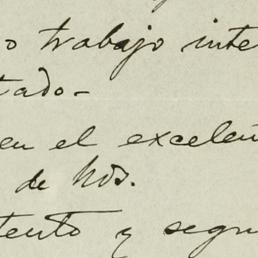 o trabajo inte
tado-
en el excelen
de Uds.
tento y segu